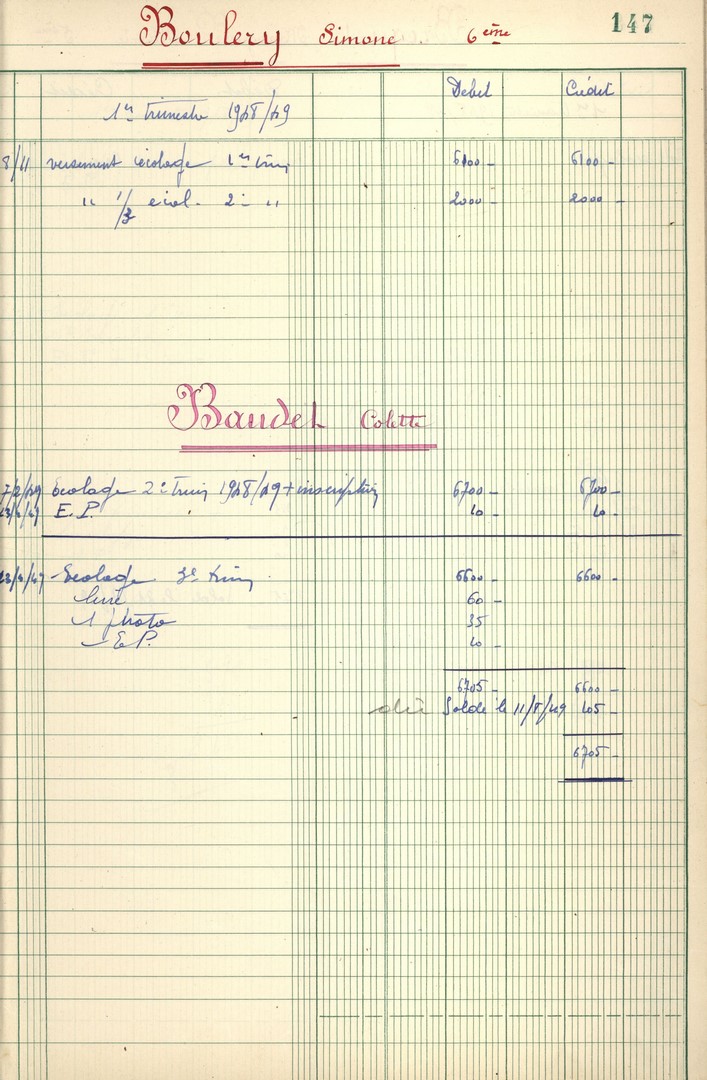 147
Boulery Simone 6ème
Débet Crédit
1er trimestre 1948/49
8/11 versement écolage 1er trim 6100 - 6100 -
" 1/3 écol. 2e " 2000 - 2000 -
Baudet Colette
7/2/49 écolage 2e Trim 1948/49 + inscription 6700 - 6700 -
E.P. 10 - 10 -
Ecolage 3e trim 6600 - 6600 -
60 -
1 photo 35
E.P. 10 -
6705 - 6600 -
dû Solde le 11/8/49 105 -
6705 -